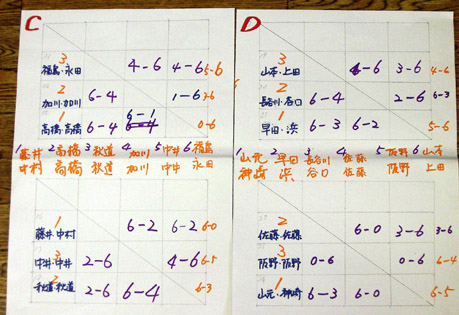 C
3
福島・永田 4-6 4-6 5-6
2
加川・加川 6-4 1-6 2-6
1 6-1
高橋・高橋 6-4 6-4 0-6
1 藤井 2 高橋 3 秋道 4 加川 5 中井 6 福島
中村 高橋 秋道 加川 中井 永田
1
藤井・中村 6-2 6-2 6-0
3
中井・中井 2-6 4-6 6-5
2
秋道・秋道 2-6 6-4 6-3
D
3
山本・上田 4-6 3-6 4-6
2
長谷川・谷口 6-4 2-6 6-3
1
早田・浜 6-3 6-2 5-6
1 山元 2 早田 3 長谷川 4 佐藤 5 阪野 6 山本
神崎 浜 谷口 佐藤 阪野 上田
2
佐藤・佐藤 6-0 3-6 3-6
3
阪野・阪野 0-6 0-6 6-4
1
山元・神崎 6-3 6-0 6-5